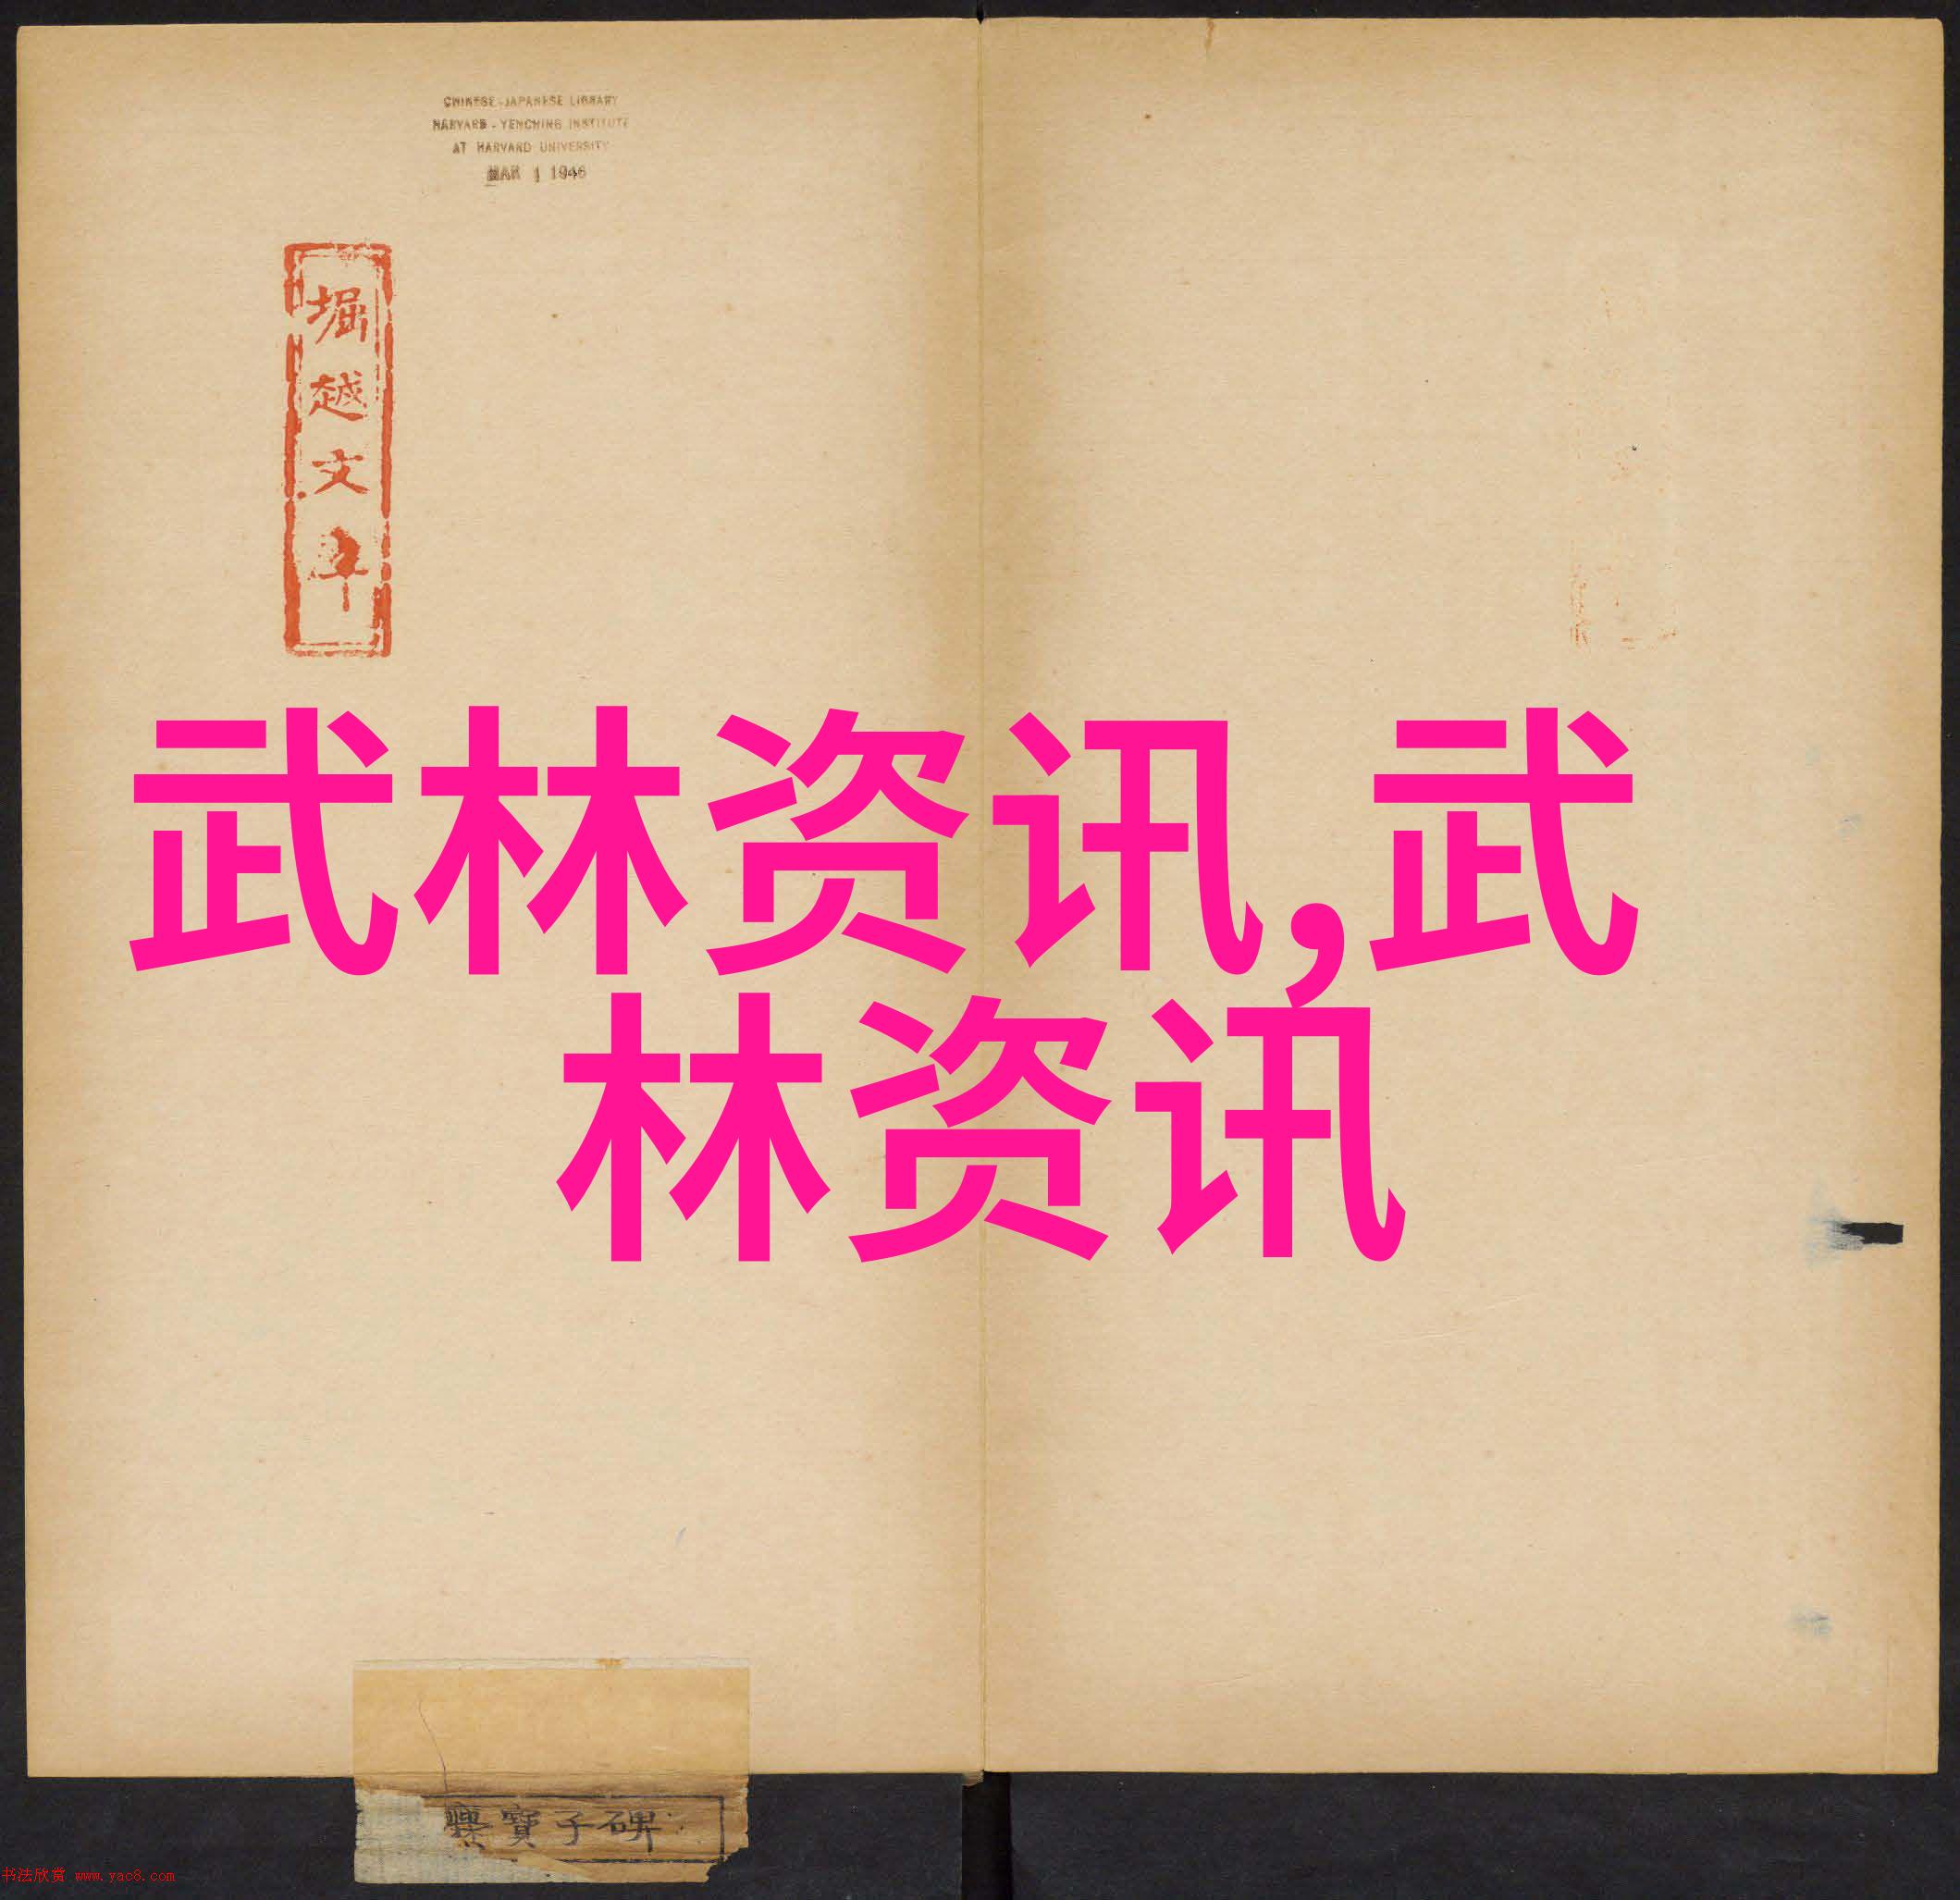 CHINESE-JAPANESE LIBRARY
HARVARD-YENCHING INSTITUTE
AT HARVARD UNIVERSITY
MAR 1 1946
堀越文
武林资讯,武
林资讯
爨寶子碑
书法欣赏 www.yac8.com